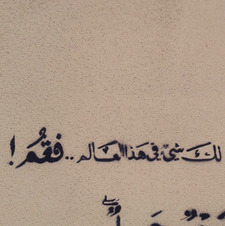 لك شيء في هذا العالم .. فقم !